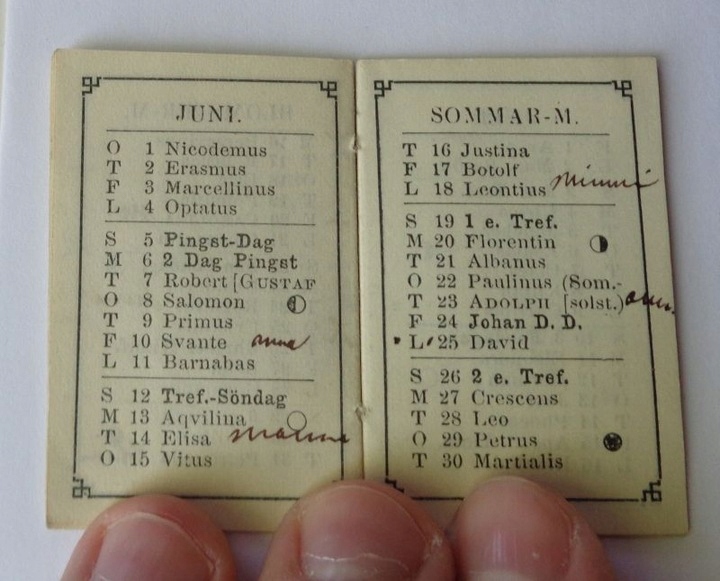 JUNI.
O 1 Nicodemus
T 2 Erasmus
F 3 Marcellinus
L 4 Optatus
S 5 Pingst-Dag
M 6 2 Dag Pingst
T 7 Robert [GUSTAF
O 8 Salomon
T 9 Primus
F 10 Svante anna
L 11 Barnabas
S 12 Tref.-Söndag
M 13 Aqvilina
T 14 Elisa
O 15 Vitus
SOMMAR-M.
T 16 Justina
F 17 Botolf
L 18 Leontius Mimmi
S 19 1 e. Tref.
M 20 Florentin
T 21 Albanus
O 22 Paulinus (Som.-
T 23 ADOLPH [solst.)
F 24 Johan D. D.
L 25 David
S 26 2 e. Tref.
M 27 Crescens
T 28 Leo
O 29 Petrus
T 30 Martialis